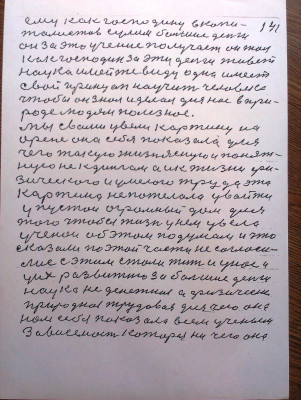 141
ему как господину в копи-
талистов сумли большие деньги
он за это учение получает он там
как господин за эти деньги живет
наука имейте ввиду одна имеет
свой принцип научит человека
чтобы он знал и делал для нас в при-
роде людям полезное.
Мы с вами увели картину на
арене она себя показала для
чего такую жизненную и понят-
ную не к книгам а и к жизни фи-
зического и умелого труда эта
картина не потопала увайти
у пустой огромный дом для
того чтобы жизнь у нем увела
ученой об этом подумали и это
сказали по этой части не согласи-
лис с этим стали жить и у ноей
цих развитию за большие деньги
наука не денежная а физически
природная трудовая для чего она
нам себя показала всем ученым
Зависемост которая ни чего она